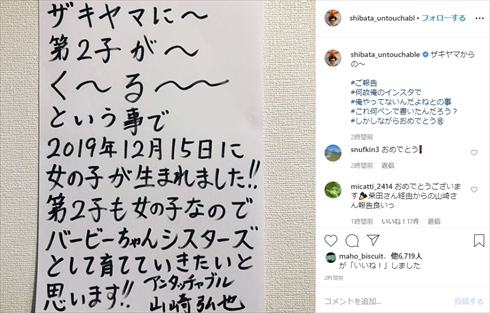 ザキヤマに〜
第2子が〜
く〜る〜〜
という事で
2019年12月15日に
女の子が生まれました!!
第2子も女の子なので
バービーちゃんシスターズ
として育てていきたいと
思います!! アンタッチャブル
山崎弘也
shibata_untouchabl・フォローする
shibata_untouchable ザキヤマから
の〜
#ご報告
#何故俺のインスタで
#俺やってないんだよねとの事
#これ何ペンで書いたんだろう？
#しかしながらおめでとう㊗
2時間前
snufkin3 おめでとう
2時間前 返信
micatti_2414 おめでとうございま
す 柴田さん経由からの山崎さ
ん報告良いっ
1時間前 いいね！17件 返信
maho_biscuit、他6,719人
が「いいね！」しました
2時間前
コメントを追加...